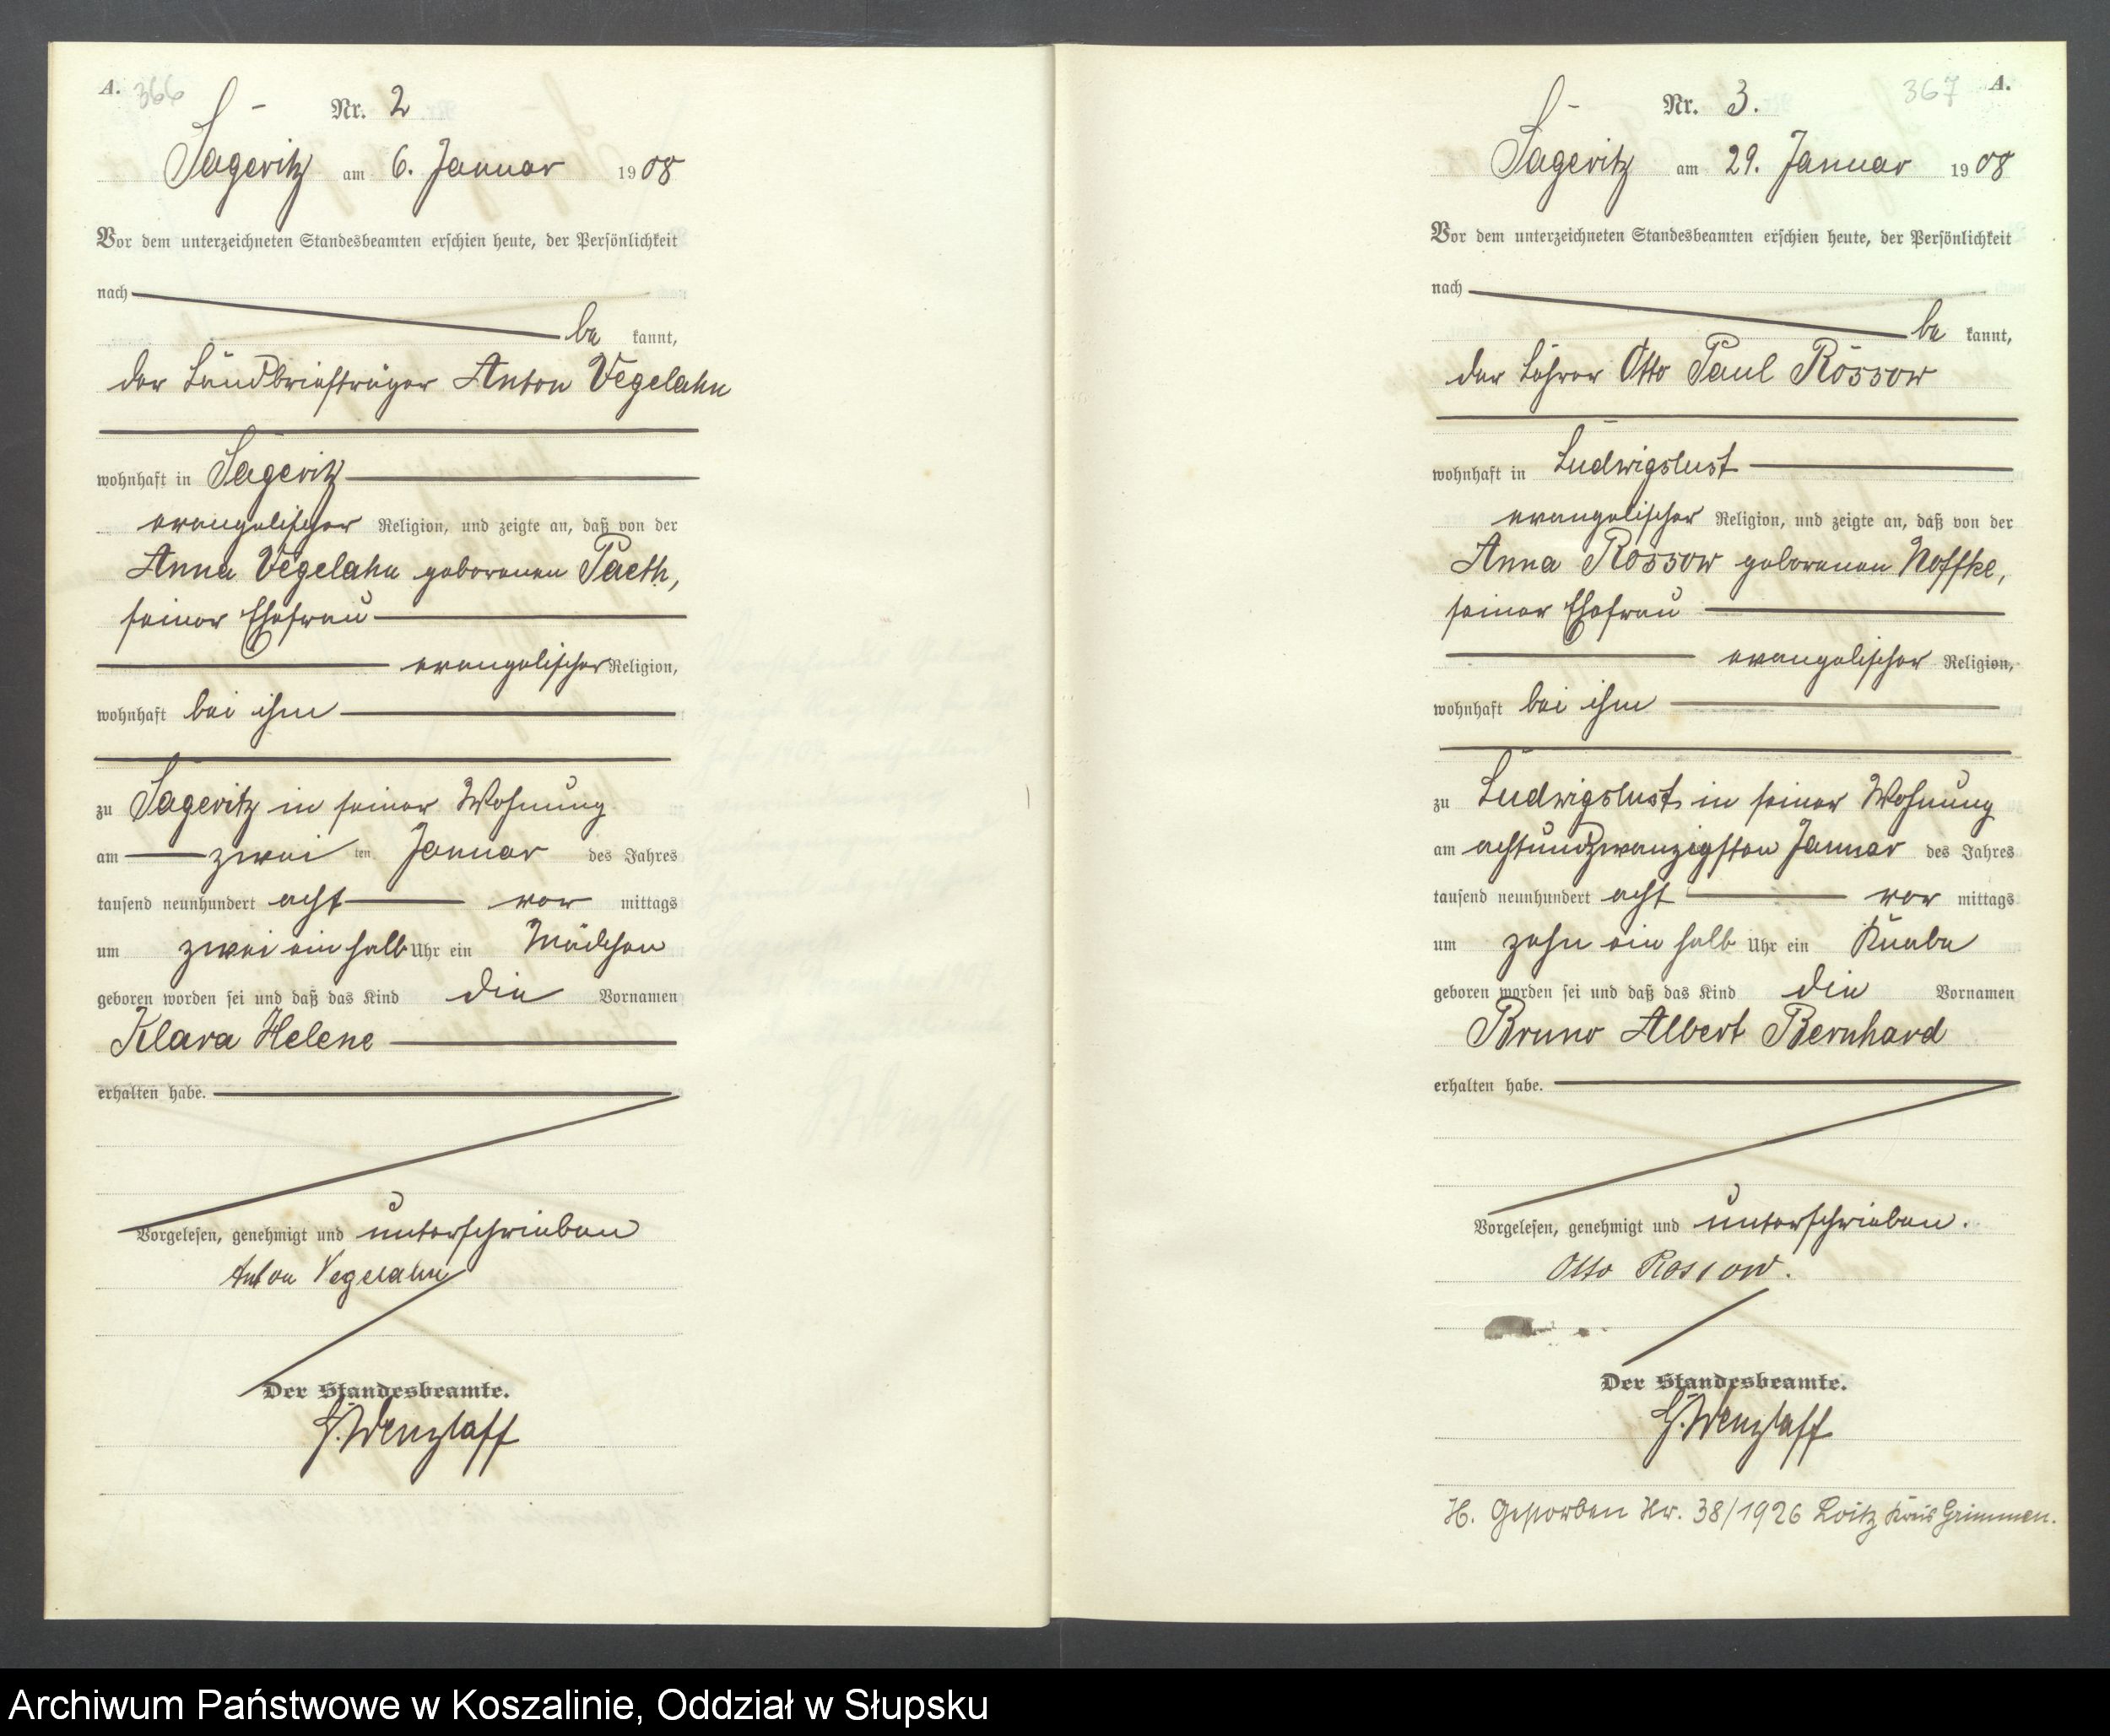 A. 366
Nr. 2
Sageritz am 6. Januar 1908
Vor dem unterzeichneten Standesbeamten erschien heute, der Persönlichkeit
nach
be kannt,
der Landbriefträger Anton Vegelahn
wohnhaft in Sageritz
evangelischer Religion, und zeigte an, daß von der
Anna Vegelahn geborenen Paeth,
seiner Ehefrau
evangelischer Religion,
wohnhaft bei ihm
zu Sageritz in seiner Wohnung
am zwei ten Januar des Jahres
tausend neunhundert acht vor mittags
um zwei ein halb Uhr ein Mädchen
geboren worden sei und daß das Kind die Vornamen
Klara Helene
erhalten habe.
Vorgelesen, genehmigt und unterschrieben
Anton Vegelahn
Der Standesbeamte.
G. Wenzlaff
367 A.
Nr. 3.
Sageritz am 29. Januar 1908
Vor dem unterzeichneten Standesbeamten erschien heute, der Persönlichkeit
nach
be kannt,
der Lehrer Otto Paul Rossow
wohnhaft in Ludwigslust
evangelischer Religion, und zeigte an, daß von der
Anna Rossow geborenen Noffke,
seiner Ehefrau
evangelischer Religion,
wohnhaft bei ihm
zu Ludwigslust in seiner Wohnung
am achtundzwanzigsten Januar des Jahres
tausend neunhundert acht vor mittags
um zehn ein halb Uhr ein Knabe
geboren worden sei und daß das Kind die Vornamen
Bruno Albert Bernhard
erhalten habe.
Vorgelesen, genehmigt und unterschrieben.
Otto Rossow.
Der Standesbeamte.
G. Wenzlaff
H. Gestorben Nr. 38/1926 Loitz Kreis Grimmen.
Archiwum Państwowe w Koszalinie, Oddział w Słupsku